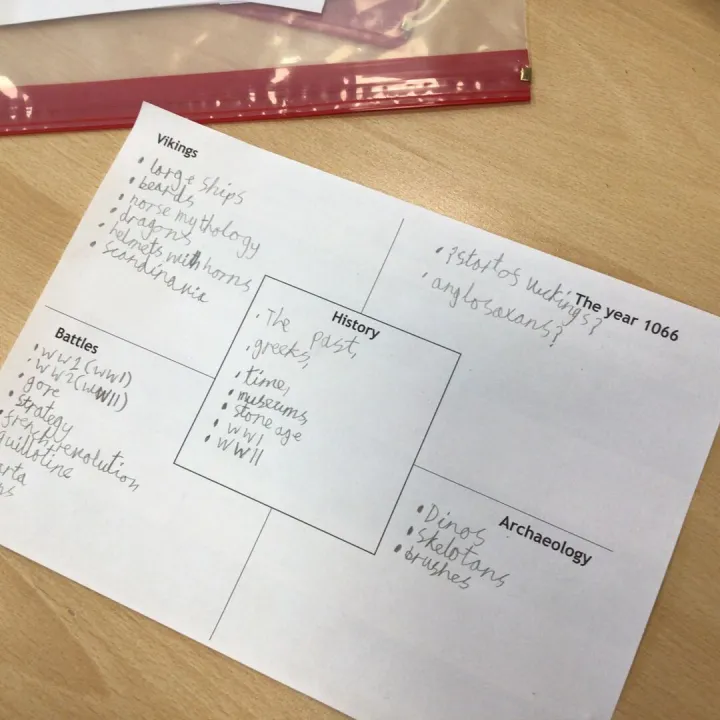 Vikings
• large ships
• beards
• norse mythology
• dragons
• helmets with horns
• scandinavia
The year 1066
• ? start of vickings?
• anglosaxans?
History
• The past,
• greeks,
• time,
• museums
• stone age
• WWI
• WWII
Battles
• WW1 (WWI)
• WW2 (WWII)
• gore
• strategy
french revolution
guillotine
arta
Archaeology
• Dinos
• skelotans
• brushes